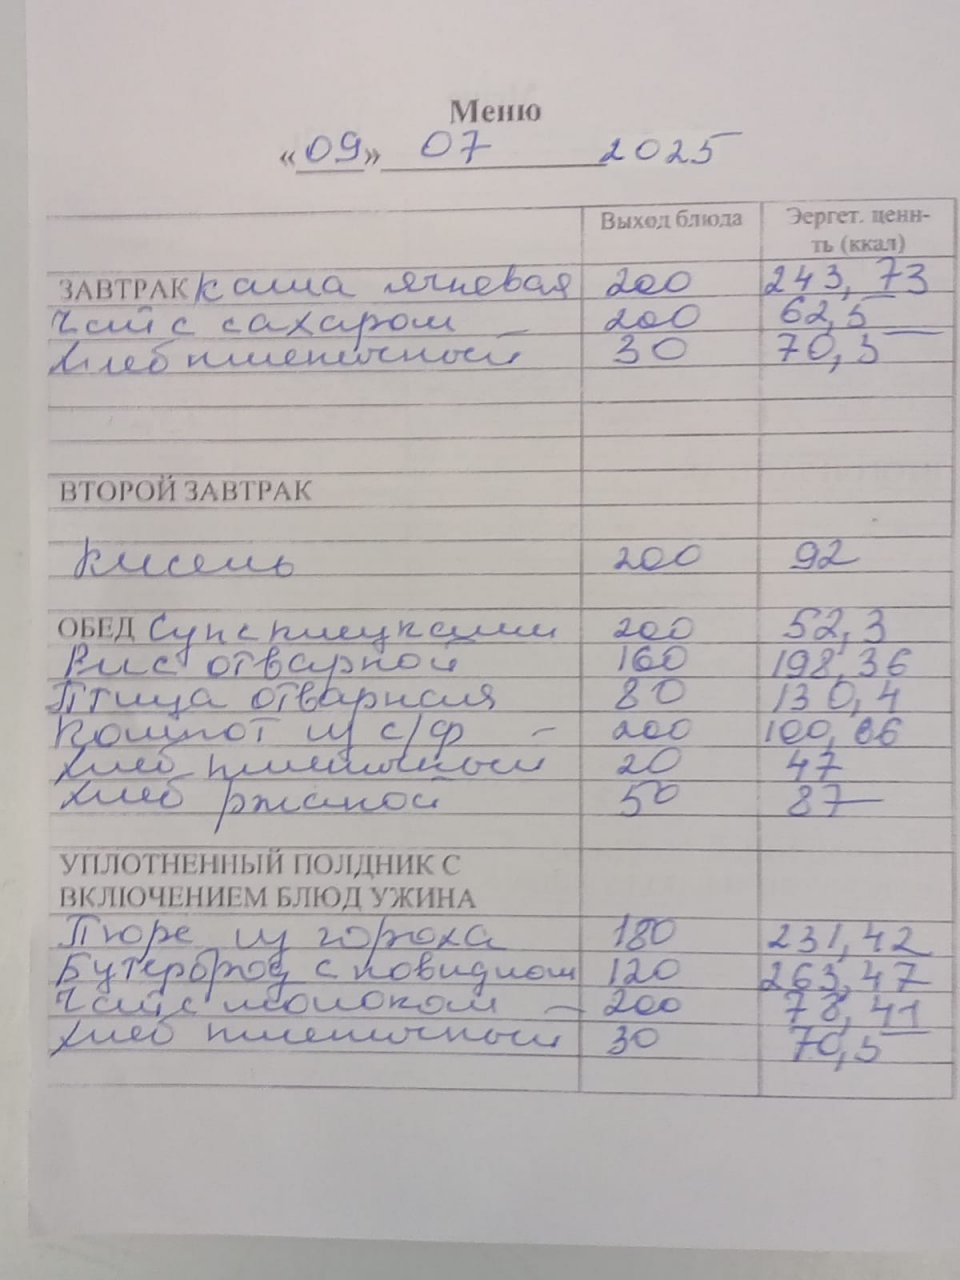 Меню
«09» 07 2025
Выход блюда Эергет. ценн-
ть (ккал)
ЗАВТРАК Каша ячневая 200 243,73
Чай с сахаром 200 62,5
Хлеб пшеничной 30 70,5
ВТОРОЙ ЗАВТРАК
Кисель 200 92
ОБЕД Суп с клецками 200 52,3
Рис отварной 160 198,36
Птица отварная 80 130,4
Компот из с/ф - 200 100,06
Хлеб пшеничной 20 47
Хлеб ржаной 50 87
УПЛОТНЕННЫЙ ПОЛДНИК С
ВКЛЮЧЕНИЕМ БЛЮД УЖИНА
Пюре из гороха 180 231,42
Бутерброд с повидлом 120 263,47
Чай с молоком - 200 78,41
Хлеб пшеничной 30 70,5